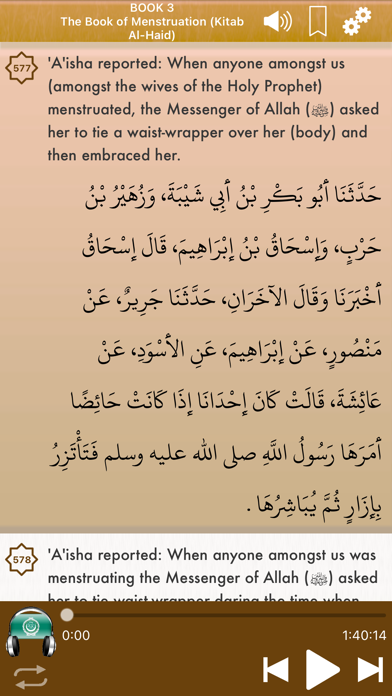 BOOK 3
The Book of Menstruation (Kitab
Al-Haid)
577
'A'isha reported: When anyone amongst us
(amongst the wives of the Holy Prophet)
menstruated, the Messenger of Allah (ﷺ) asked
her to tie a waist-wrapper over her (body) and
then embraced her.
حَدَّثَنَا أَبُو بَكْرِ بْنُ أَبِي شَيْبَةَ، وَزُهَيْرُ بْنُ
حَرْبٍ، وَإِسْحَاقُ بْنُ إِبْرَاهِيمَ، قَالَ إِسْحَاقُ
أَخْبَرَنَا وَقَالَ الآخَرَانِ، حَدَّثَنَا جَرِيرٌ، عَنْ
مَنْصُورٍ، عَنْ إِبْرَاهِيمَ، عَنِ الأَسْوَدِ، عَنْ
عَائِشَةَ، قَالَتْ كَانَ إِحْدَانَا إِذَا كَانَتْ حَائِضًا
أَمَرَهَا رَسُولُ اللَّهِ صلى الله عليه وسلم فَتَأْتَزِرُ
بِإِزَارٍ ثُمَّ يُبَاشِرُهَا .
578
'A'isha reported: When anyone amongst us was
menstruating the Messenger of Allah (ﷺ) asked
her to tie waist-wrapper daring the time when
0:00
1:40:14